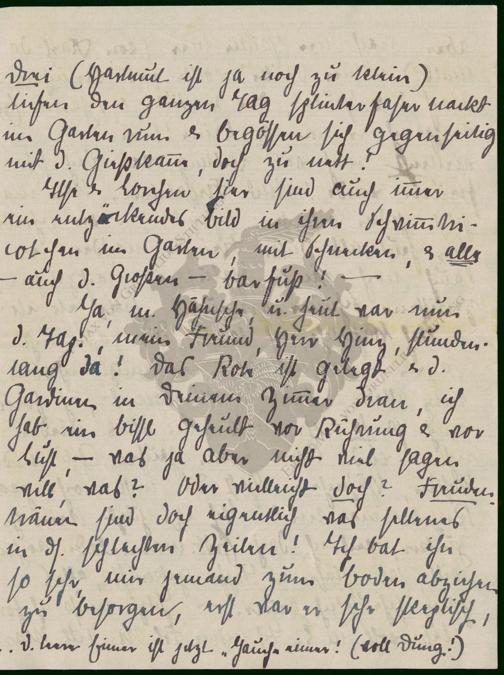 drei (Hartmut ist ja noch zu klein)
liefen den ganzen Tag splinterfaser nackt
im Garten rum & begossen sich gegenseitig
mit d. Gießkanne, doch zu nett!
Ilse & Lorchen hier sind auch immer
ein entzückendes Bild in ihren Schwimmtri-
cotchen im Garten, mit Schnecken, & alle
– auch d. Großen – barfuß! –
Ja, m. Häsische, u. heut war nun
d. Tag, mein Freund, Herr Hinz, stunden-
lang da! Das Rote ist gelegt & d.
Gardinen in Deinem Zimmer dran, ich
hab ein bissl geheult vor Rührung & vor
– was ja aber nicht viel sagen
will, was? Oder vielleicht doch? Freuden-
tränen sind doch eigentlich was seltenes
in ds. schlechten Zeiten! Ich bat ihn
so sehr, mir jemand zum boden abziehen
zu besorgen, erst war er sehr skeptisch,
.. d. leere Eimer ist jetzt "Jauche"eimer! (voll Dung!)